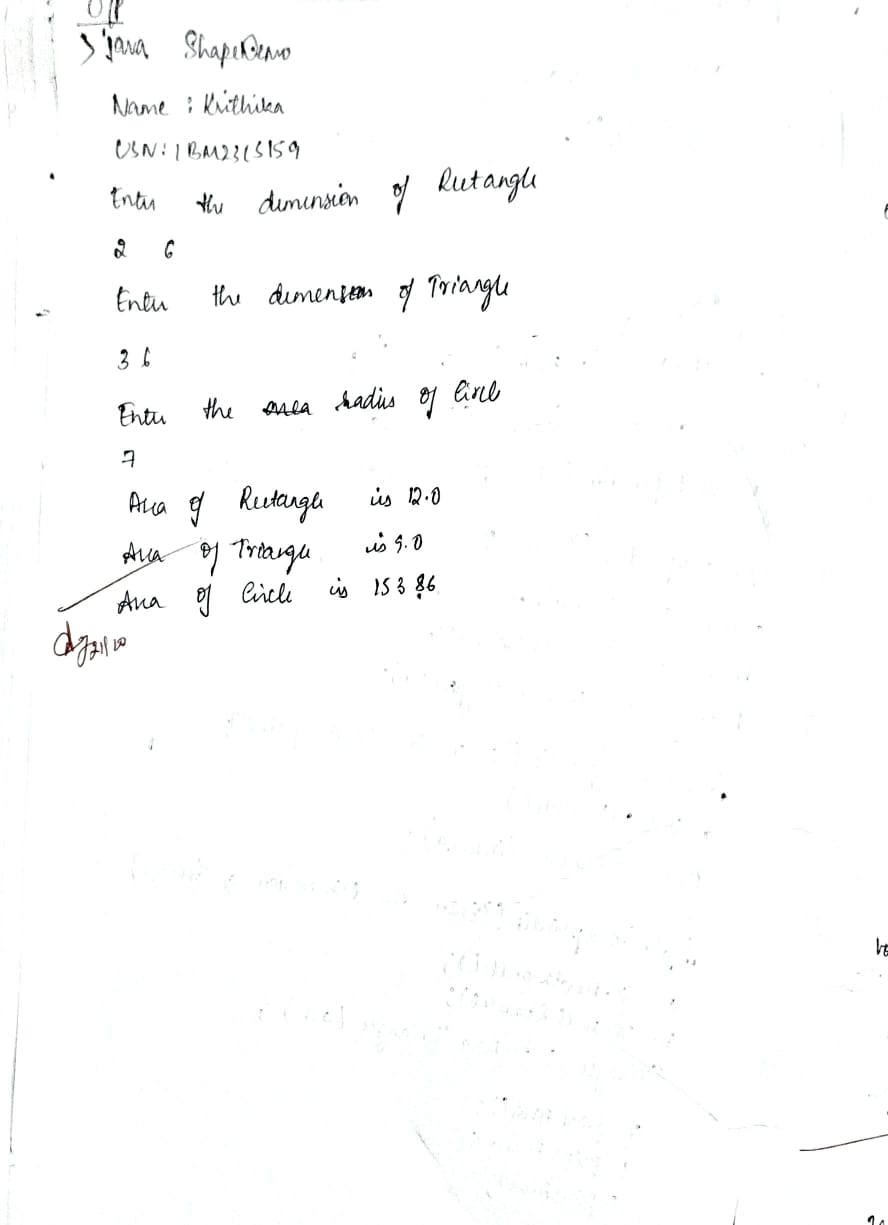 O/P
> java ShapeDemo
Name : Krithika
USN: 1BM23CS159
Enter the dimension of Rectangle
2 6
Enter the dimension of Triangle
3 6
Enter the area radius of Circle
7
Area of Rectangle is 12.0
Area of Triangle is 9.0
Area of Circle is 153.86